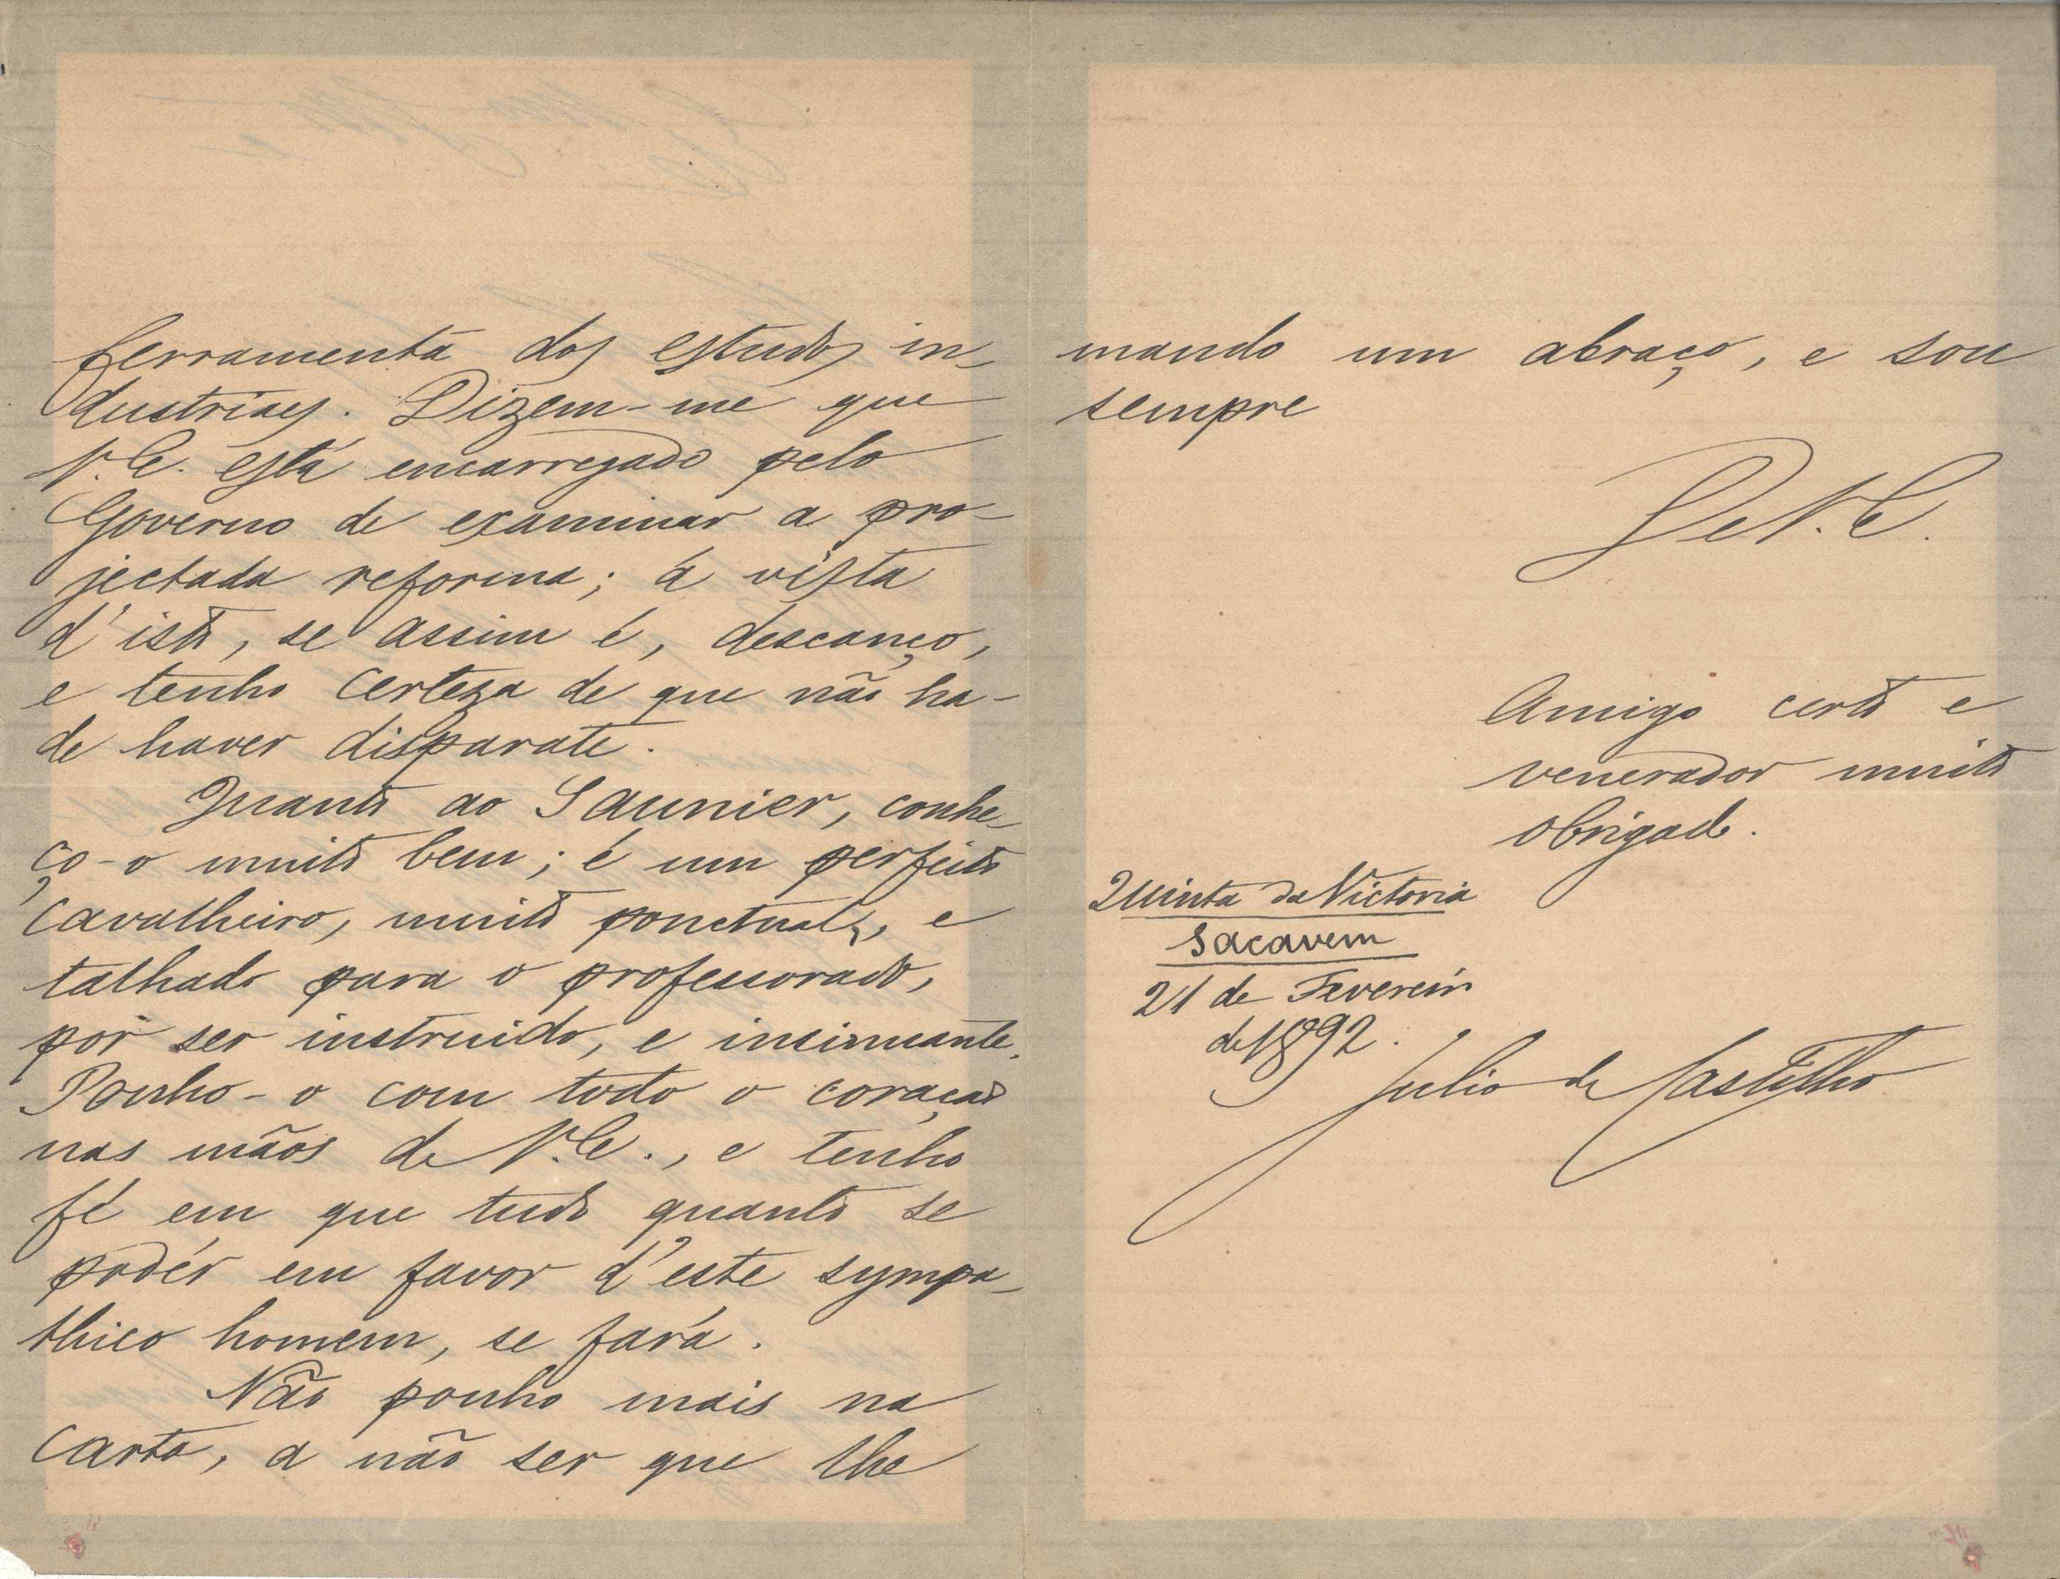 ferramenta dos estudos in-
dustriaes. Dizem-me que
V. Ex. está encarregado pelo
Governo de examinar a pro-
jectada reforma; á vista
d'isto, se assim é, descanço,
e tenho certeza de que não ha-
de haver disparate.
Quanto ao Saunier, conhe-
ço-o muito bem; é um perfeito
cavalheiro, muito ponctual, e
talhado para o professorado,
por ser instruido, e insinuante.
Ponho-o com todo o coração
nas mãos de V. Ex., e tenho
fé em que tudo quanto se
podér em favor d'este sympa-
thico homem, se fará.
Não ponho mais na
carta, a não ser que lhe
mando um abraço, e sou
sempre
De V. Ex.
Amigo certo e
venerador muito
obrigado.
Quinta da Victoria
Sacavem
21 de Fevereiro
de 1892.
Julio de Castilho